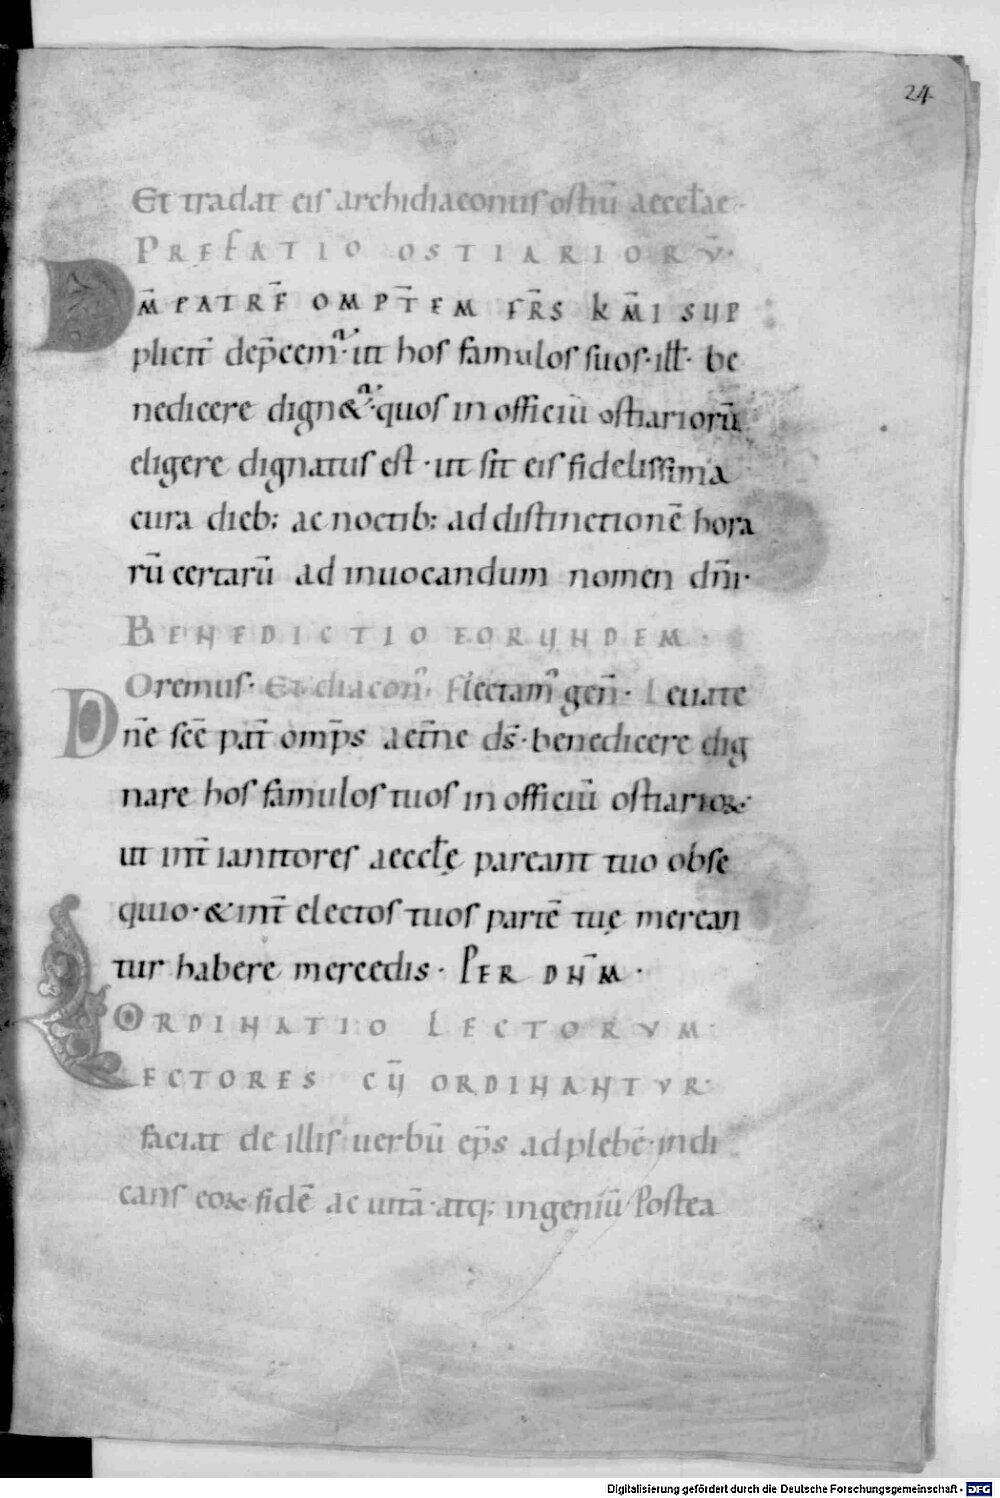 24
Et tradat eis archidiaconus ostiū aeccl̄ae.
PREFATIO OSTIARIORV̄.
DM̄ PATRĒ OMPT̄EM FR̄S KM̄I SUP
plicit̄ dep̄cem᷒. ut hos famulos suos. ill̄. be
nedicere dign&᷒. quos in officiū ostiariorū
eligere dignatus est. ut sit eis fidelissima
cura dieb; ac noctib; ad distinctionē hora
rū certarū ad inuocandum nomen dn̄i.
BENEDICTIO EORUNDEM.
Oremus. Et diacon᷒. Flectam᷒ gen̄. Leuate
Dn̄e sc̄e pat̄ omp̄s aet̄ne ds̄. benedicere dig
nare hos famulos tuos in officiū ostiarioꝝ.
ut int̄ ianitores aeccl̄ę pareant tuo obse
quio. & int̄ electos tuos partē tuę merean
tur habere mercedis. PER DN̄M.
ORDINATIO LECTORVM.
LECTORES CŪ ORDINANTVR.
faciat de illis uerbū ep̄s ad plebē. indi
cans eoꝝ fidē ac uitā. atq; ingeniū. Postea
Digitalisierung gefördert durch die Deutsche Forschungsgemeinschaft - DFG